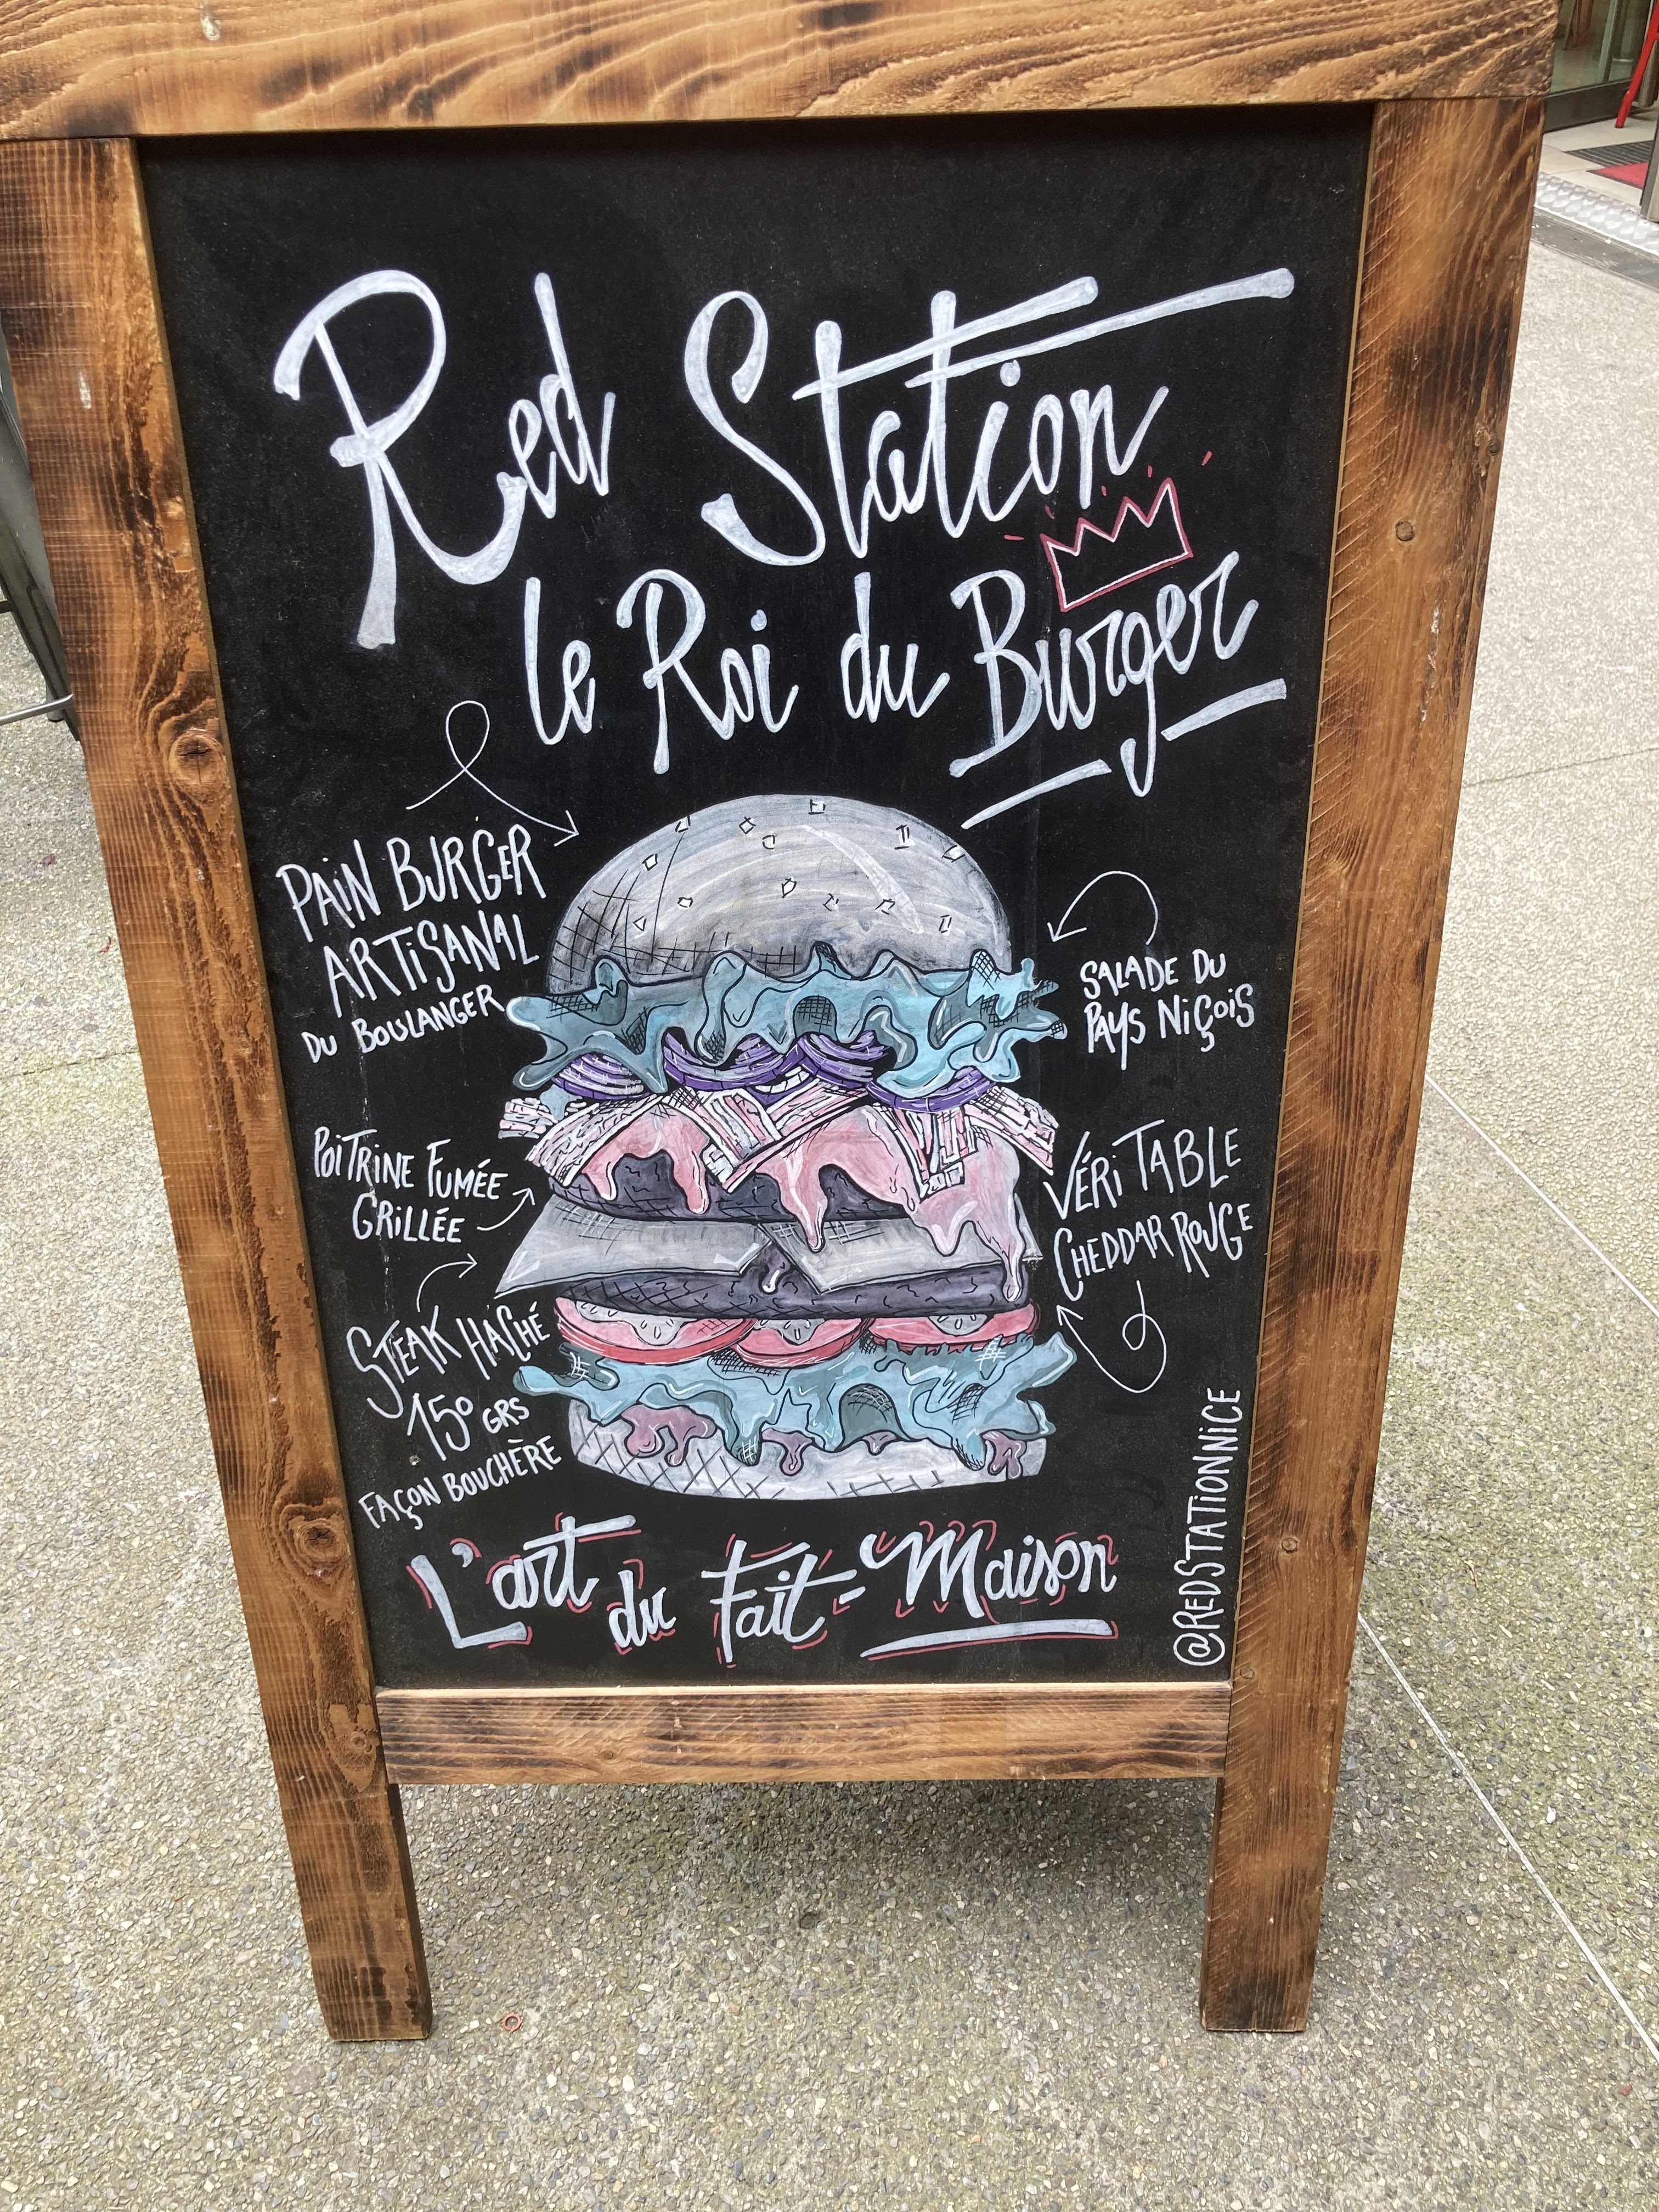 Red Station
le Roi du Burger
PAIN BURGER
ARTISANAL
DU BOULANGER
SALADE DU
PAYS NIÇOIS
POITRINE FUMÉE
GRILLÉE
VÉRITABLE
CHEDDAR ROUGE
STEAK HACHÉ
150 GRS
FAÇON BOUCHÈRE
L'art du Fait-Maison
@REDSTATIONNICE